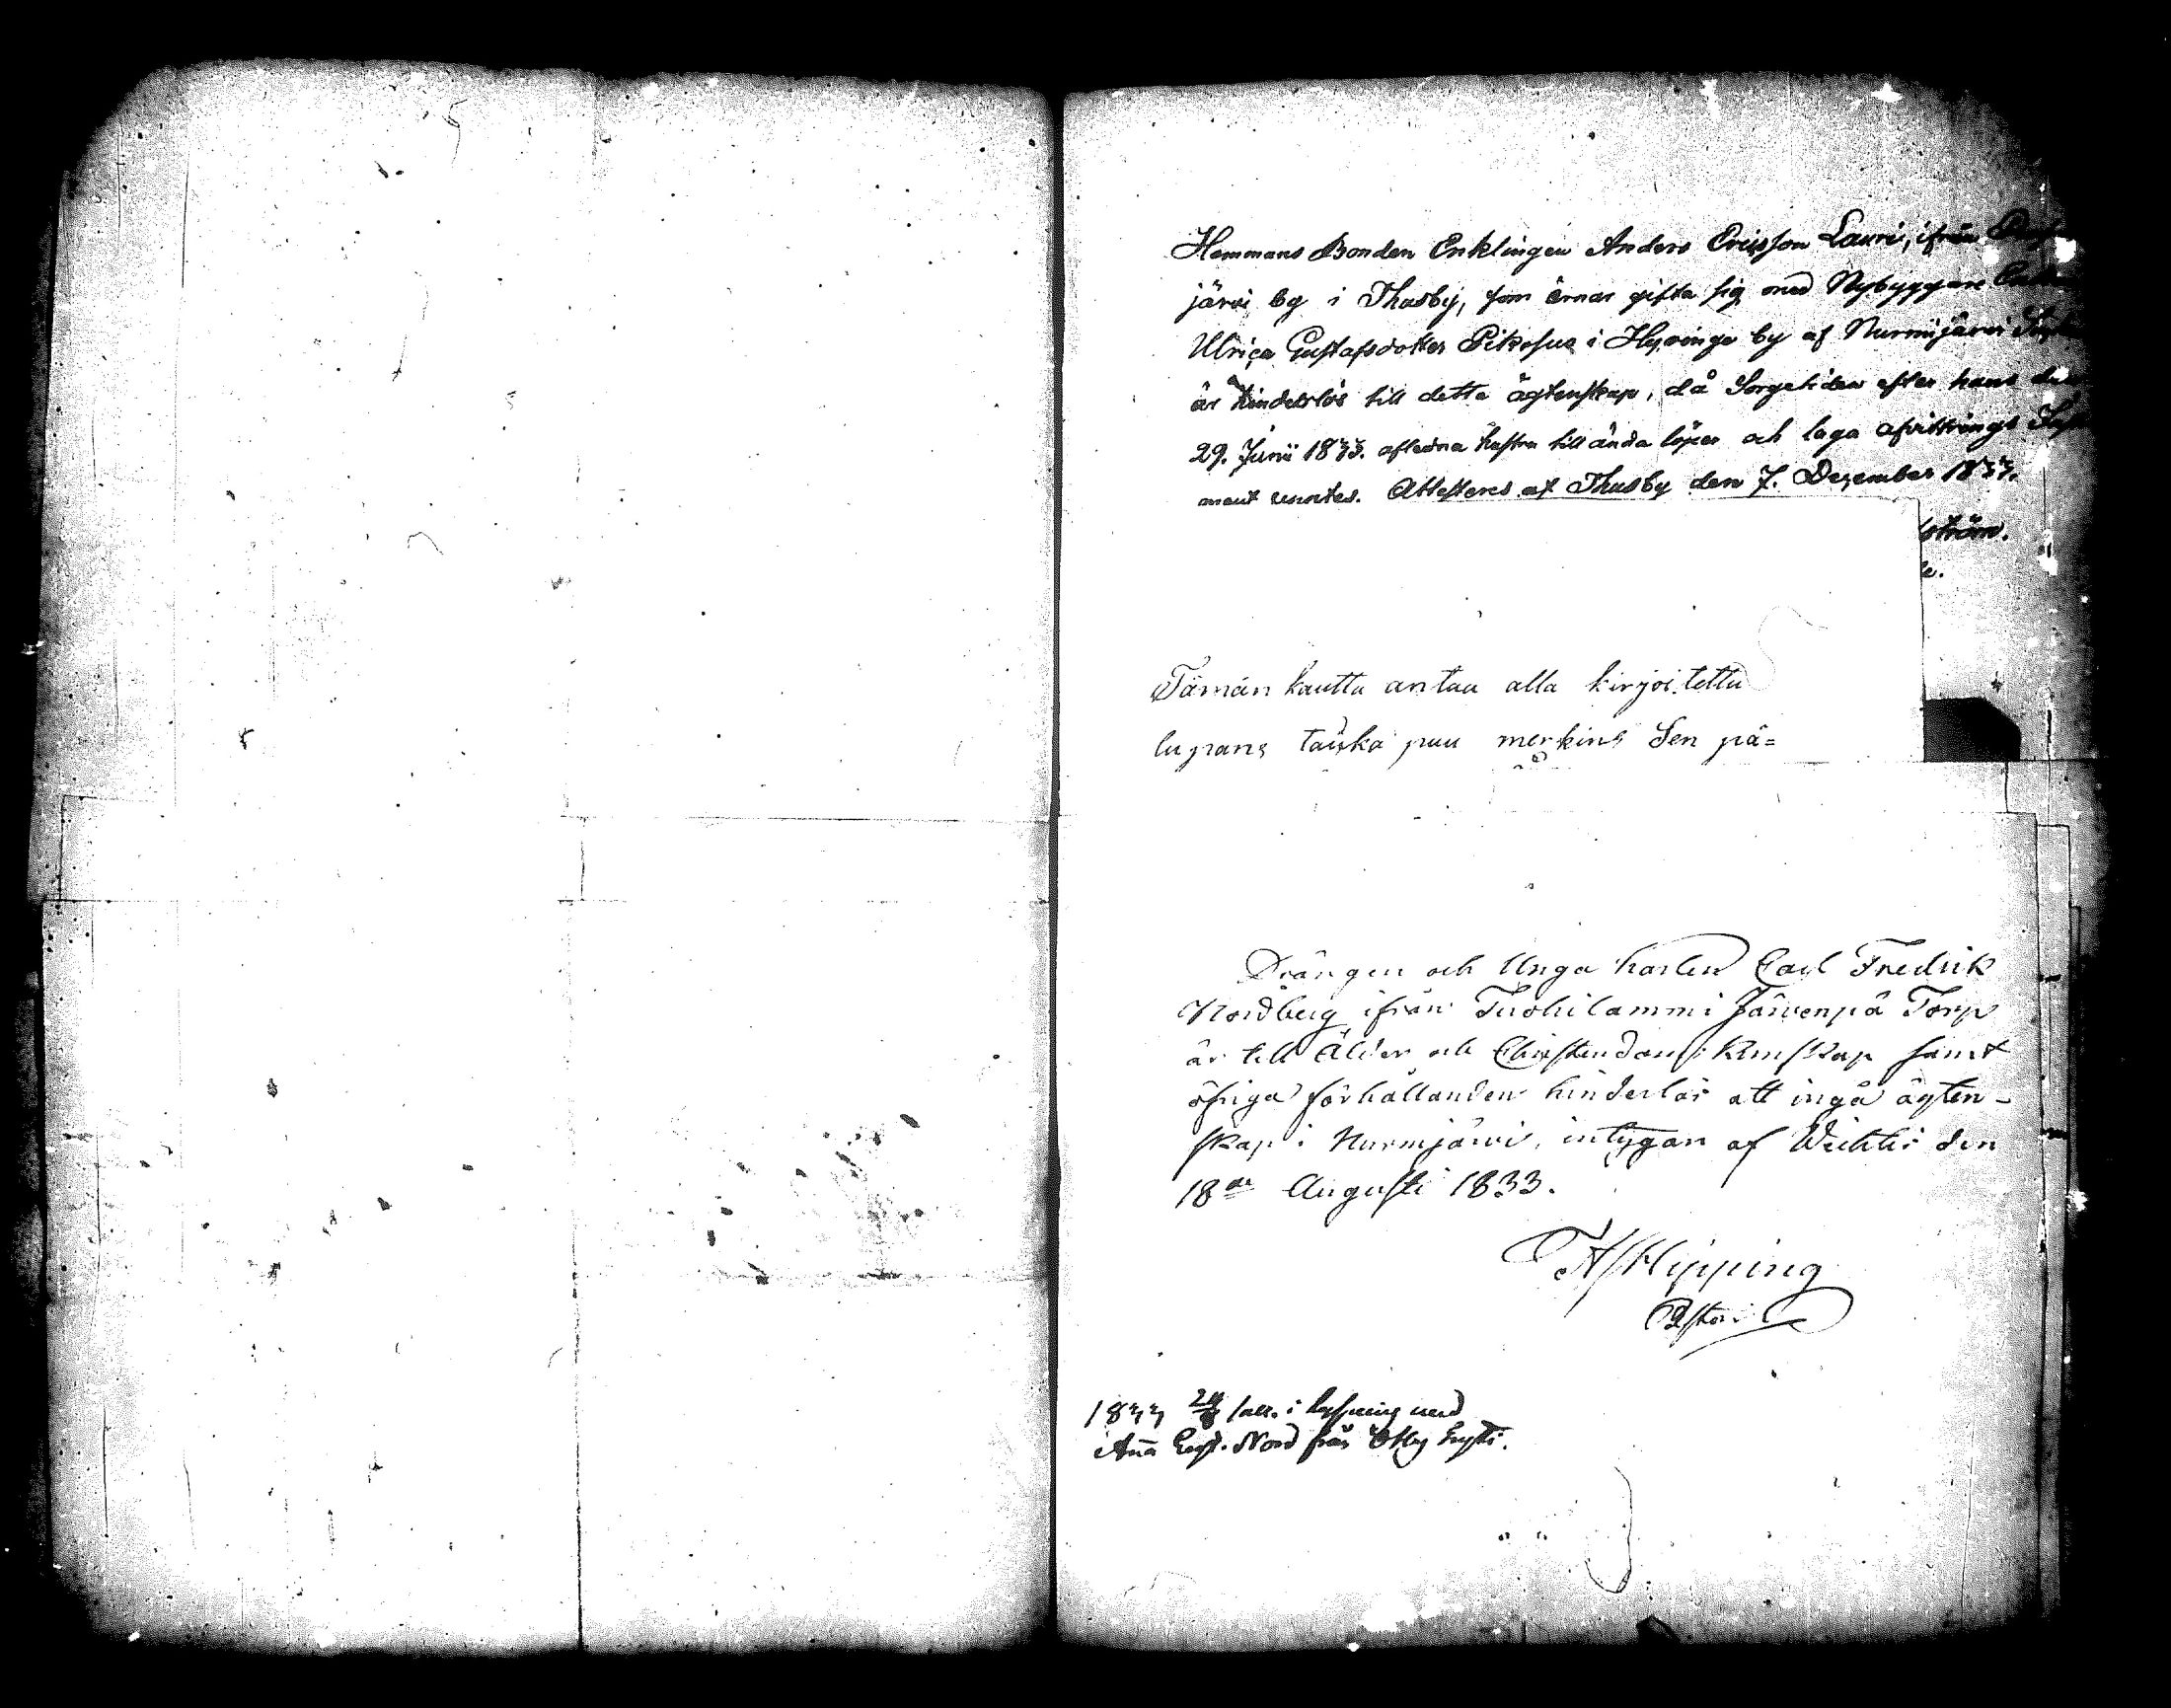 Hemmans Bonden Enklingen Anders Ericsson Lauri, ifrån
järvi by i Thusby, som ärnar gifta sig med Nybyggare Enkan
Ulrica Gustafsdotter i Hyvinge by af Nurmijärvi
är hinderlös till detta ägtenskap, då Sorgetiden efter hans den
29. Junii 1833. aflidna hustru till ända löper och laga afvittrings
ment. Attesteras af Thusby den 7. December 1833.
ström.
Tämän kautta antaa alla kirjoitettu
lupans taicka puu merkins Sen pä=
Drängen och Unga karlen Carl Fredrik
Nordberg ifrån Tuohilammi Järvenpä Torp
är till Ålder och Christendoms Kunskap samt
öfriga förhållanden hinderlös att ingå ägten-
skap i Nurmjärvi, intygar af Wichtis den
18de Augusti 1833.
FAHipping
Pastor
1833 i lysning med
Anna Gust. Nord från